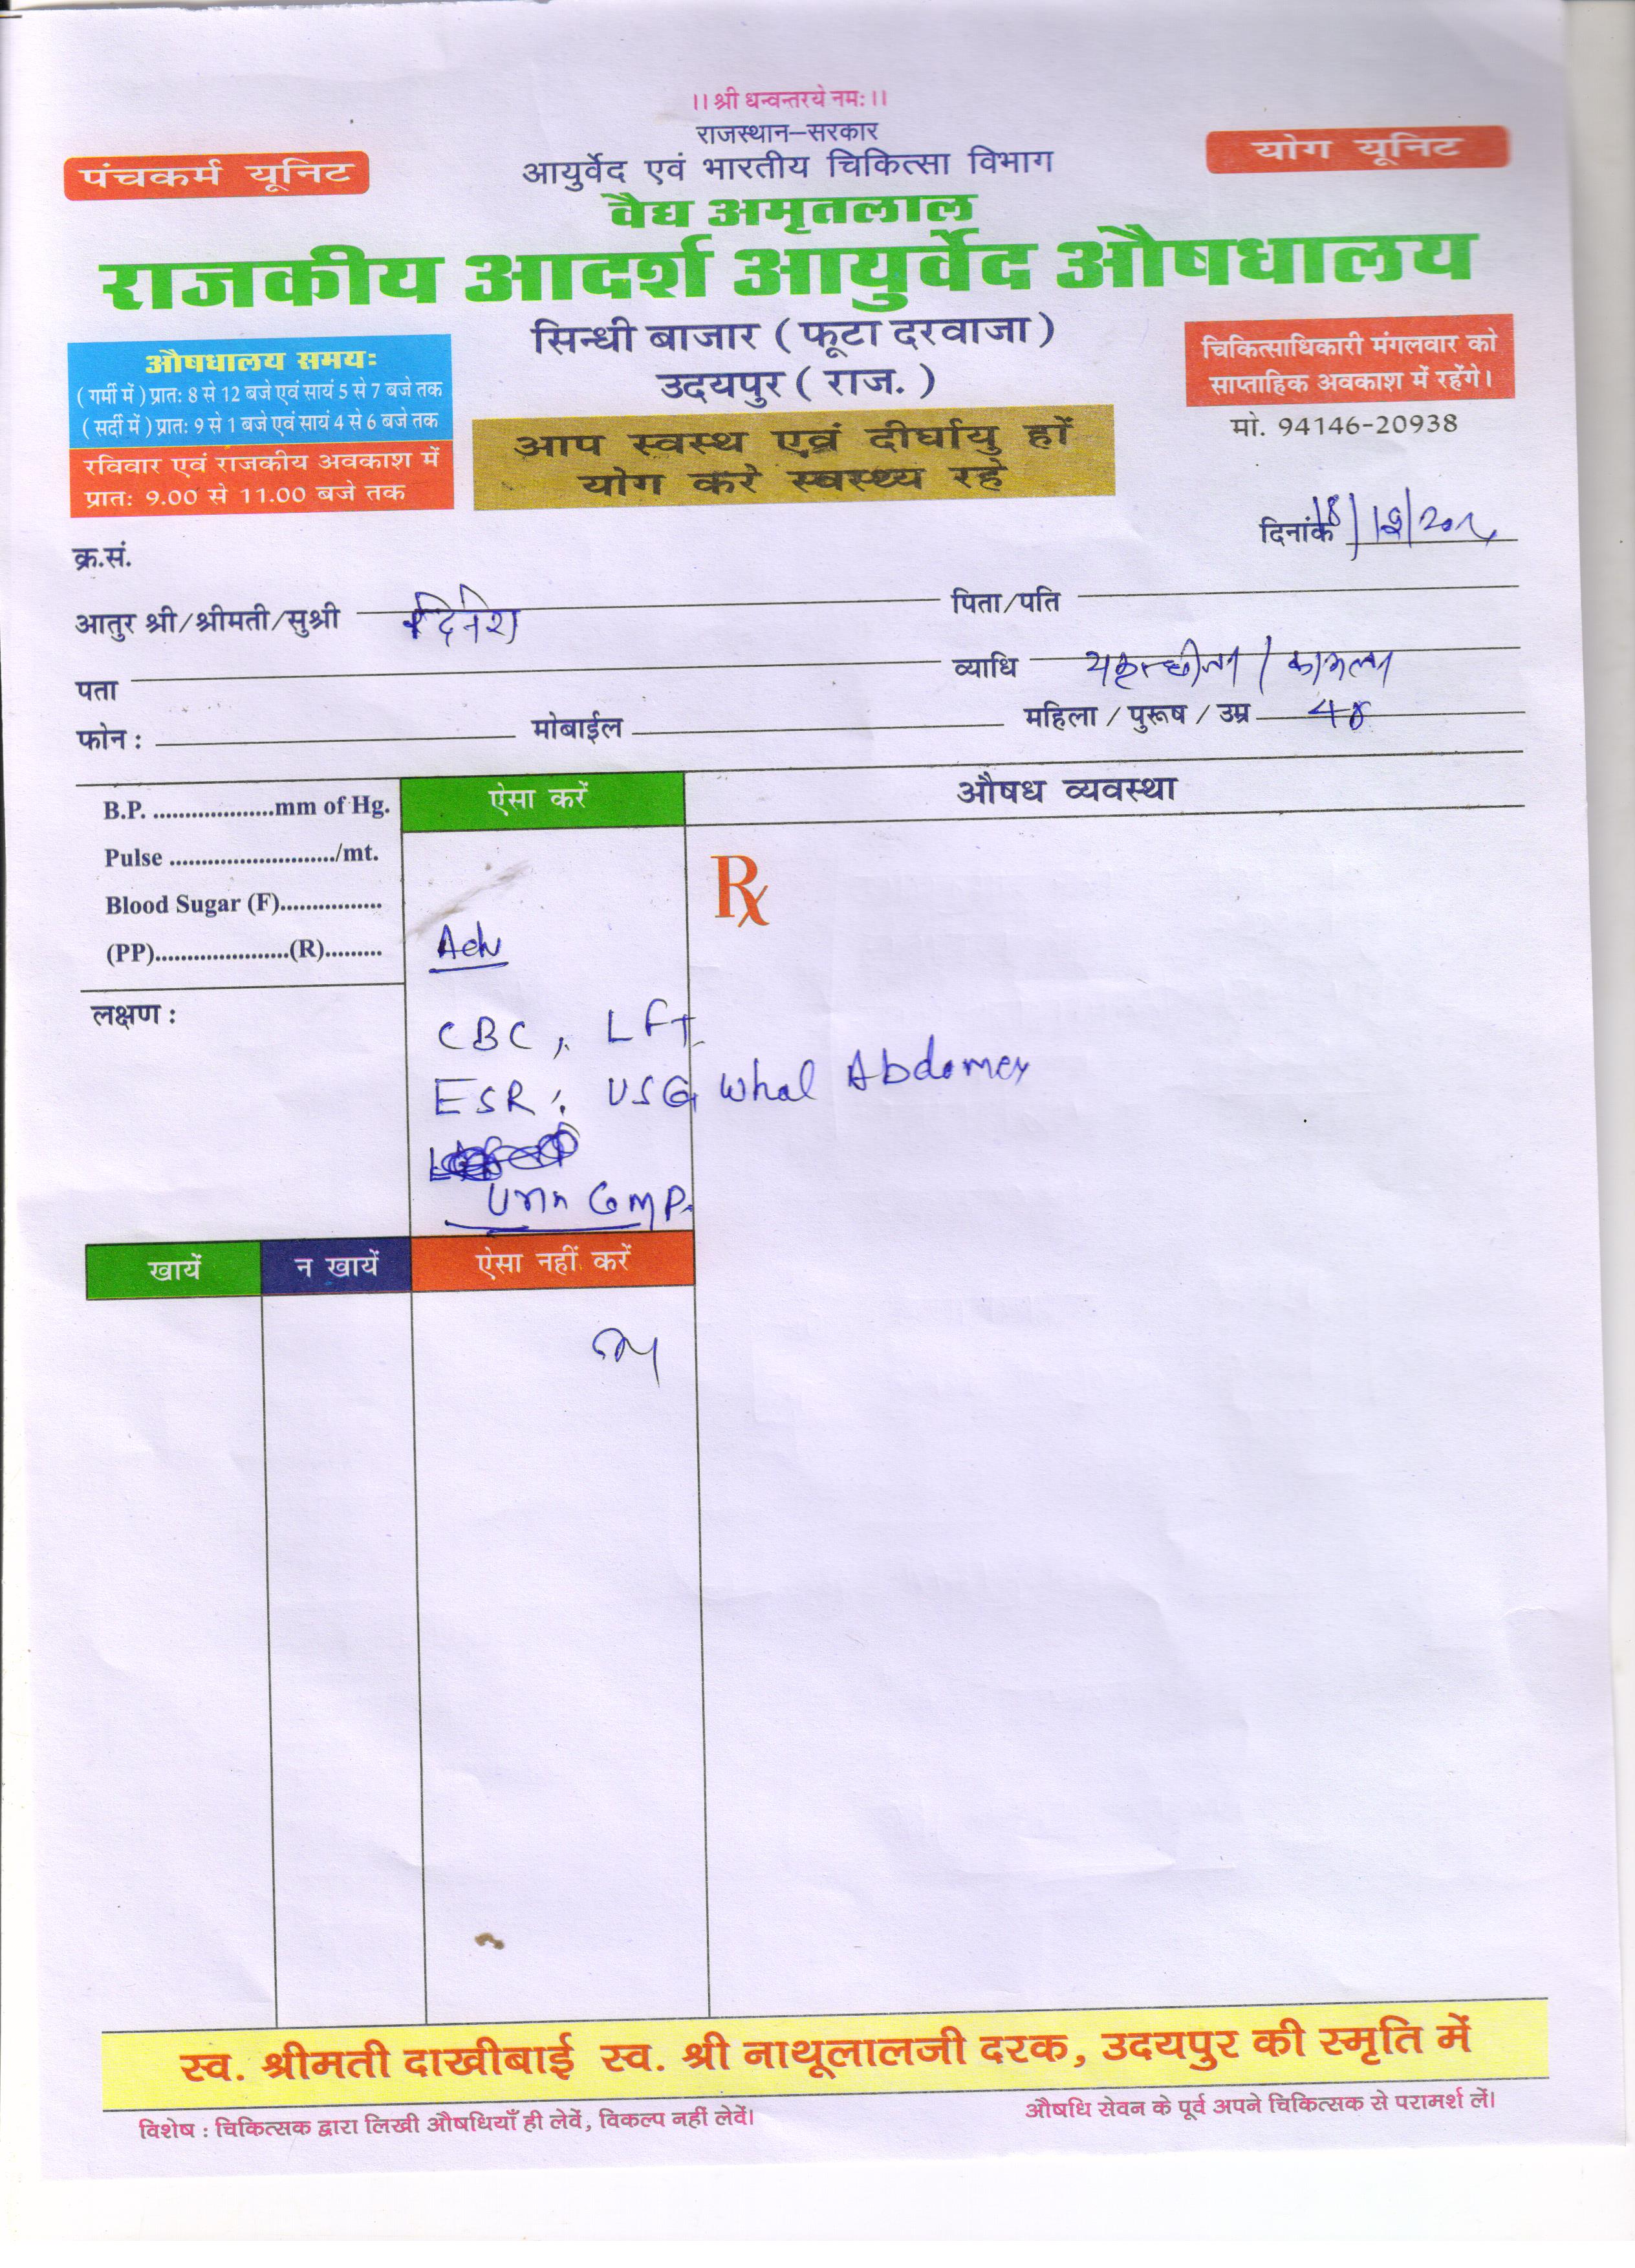 ।। श्री धन्वन्तरये नमः ।।
राजस्थान–सरकार
पंचकर्म यूनिट
आयुर्वेद एवं भारतीय चिकित्सा विभाग
योग यूनिट
वैद्य अमृतलाल
राजकीय आदर्श आयुर्वेद औषधालय
सिन्धी बाजार ( फूटा दरवाजा )
उदयपुर ( राज. )
औषधालय समयः
( गर्मी में ) प्रातः 8 से 12 बजे एवं सायं 5 से 7 बजे तक
( सर्दी में ) प्रातः 9 से 1 बजे एवं सायं 4 से 6 बजे तक
रविवार एवं राजकीय अवकाश में
प्रातः 9.00 से 11.00 बजे तक
आप स्वस्थ एवं दीर्घायु हों
योग करे स्वस्थ्य रहे
चिकित्साधिकारी मंगलवार को
साप्ताहिक अवकाश में रहेंगे।
मो. 94146-20938
दिनांक 18/
क्र.सं.
आतुर श्री/श्रीमती/सुश्री दिनेश पिता/पति
पता व्याधि / कामला
फोन : मोबाईल महिला / पुरूष / उम्र 48
B.P. ...................mm of Hg.
Pulse ........................../mt.
Blood Sugar (F)................
(PP).....................(R).........
लक्षण :
ऐसा करें
औषध व्यवस्था
Rx
Adv
CBC, LFT
ESR, USG Whol Abdomen
Urin Comp.
खायें न खायें ऐसा नहीं करें
स्व. श्रीमती दाखीबाई स्व. श्री नाथूलालजी दरक, उदयपुर की स्मृति में
विशेष : चिकित्सक द्वारा लिखी औषधियाँ ही लेवें, विकल्प नहीं लेवें।
औषधि सेवन के पूर्व अपने चिकित्सक से परामर्श लें।